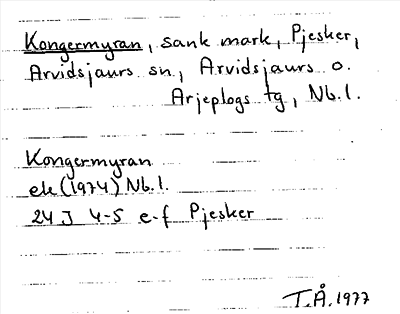 Kongermyran, sank mark, Pjesker,
Arvidsjaurs sn, Arvidsjaurs o.
Arjeplogs tg, Nb.l.
Kongermyran
ek (1974) Nb.l.
24J 4-5 e-f Pjesker
T.Å. 1977